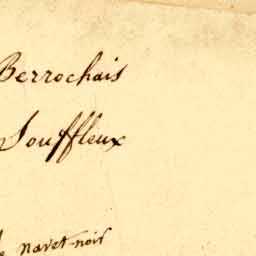 Berrochais
Souffleux
navet-noir